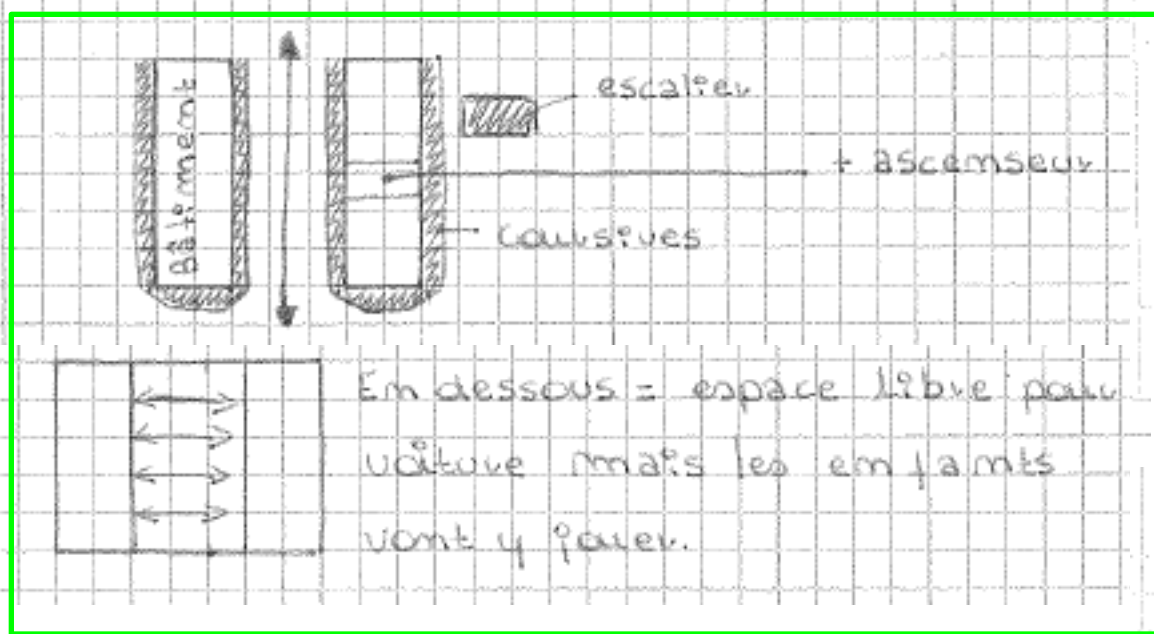 Bâtiment
escalier
+ ascenseur
coursives
En dessous = espace libre pour
voiture mais les enfants
vont y jouer.